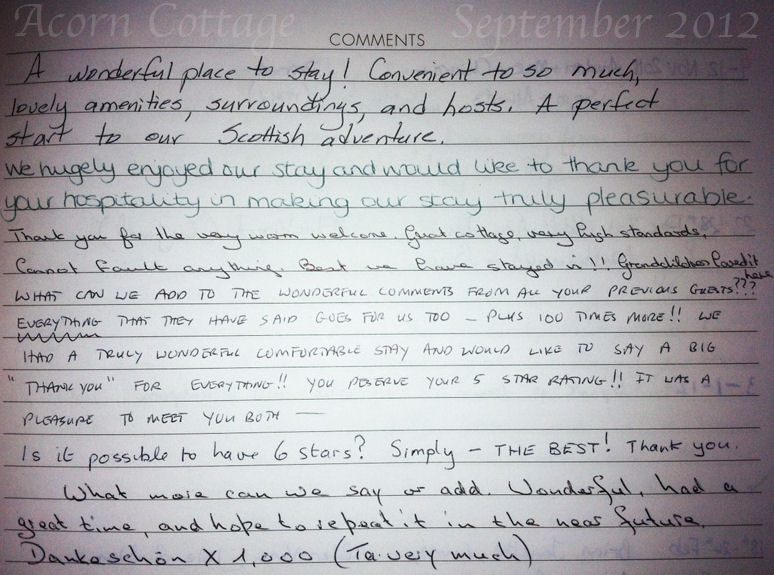 Acorn Cottage September 2012
COMMENTS
A wonderful place to stay! Convenient to so much,
lovely amenities, surroundings, and hosts. A perfect
start to our Scottish adventure.
We hugely enjoyed our stay and would like to thank you for
your hospitality in making our stay truly pleasurable.
Thank you for the very warm welcome. Great cottage, very high standards,
Cannot fault anything. Best we have stayed in!! Grandchildren loved it
here
WHAT CAN WE ADD TO THE WONDERFUL COMMENTS FROM ALL YOUR PREVIOUS GUESTS???
EVERYTHING THAT THEY HAVE SAID GOES FOR US TOO – PLUS 100 TIMES MORE!! WE
HAD A TRULY WONDERFUL COMFORTABLE STAY AND WOULD LIKE TO SAY A BIG
"THANK YOU" FOR EVERYTHING!! YOU DESERVE YOUR 5 STAR RATING!! IT WAS A
PLEASURE TO MEET YOU BOTH —
Is it possible to have 6 stars? Simply – THE BEST! Thank you.
What more can we say or add. Wonderful, had a
great time, and hope to repeat it in the near future.
Dankeschön X 1,000 (Ta very much)